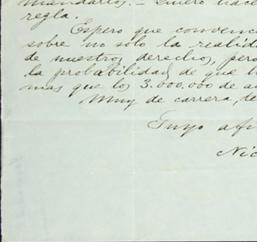 mandarlos. - Quiero hace
regla.
Espero que convenc
sobre no solo la realid
de nuestros derechos, pero
la probabilidad de que
mas que los 3.000.000 de
Muy de carrera, de
Tuyo af
Nic